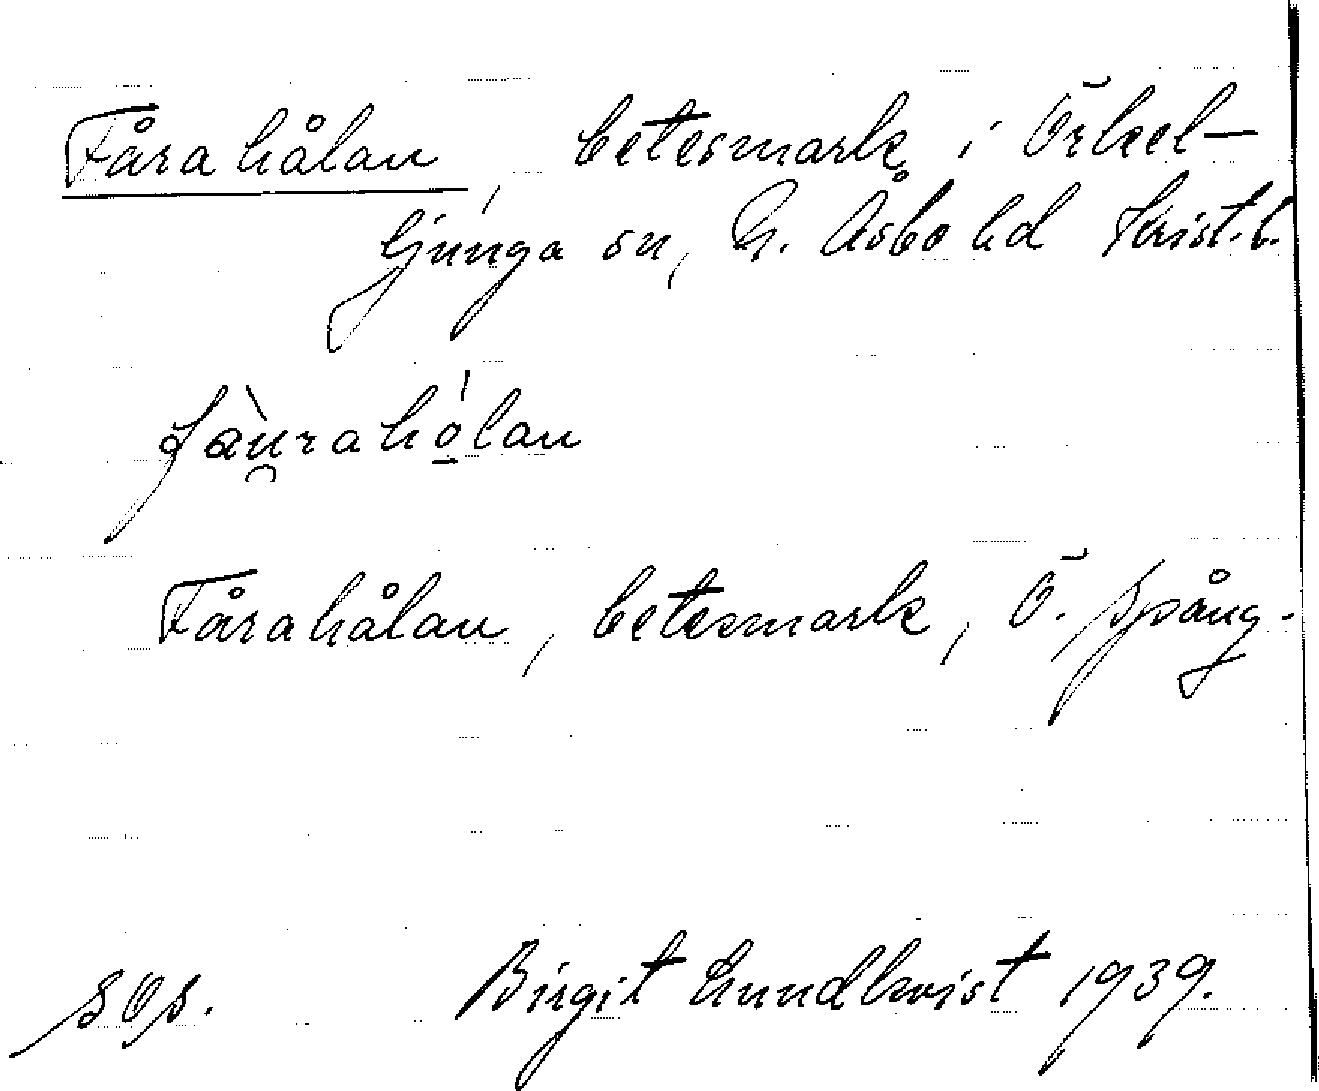 Fårahålan, betesmark i Örkel-
ljunga sn, N. Åsbo hd Krist.l.
fàu̯rahó̠lan
Fårahålan, betesmark, Ö. Spång.
Birgit Lundkvist 1939.